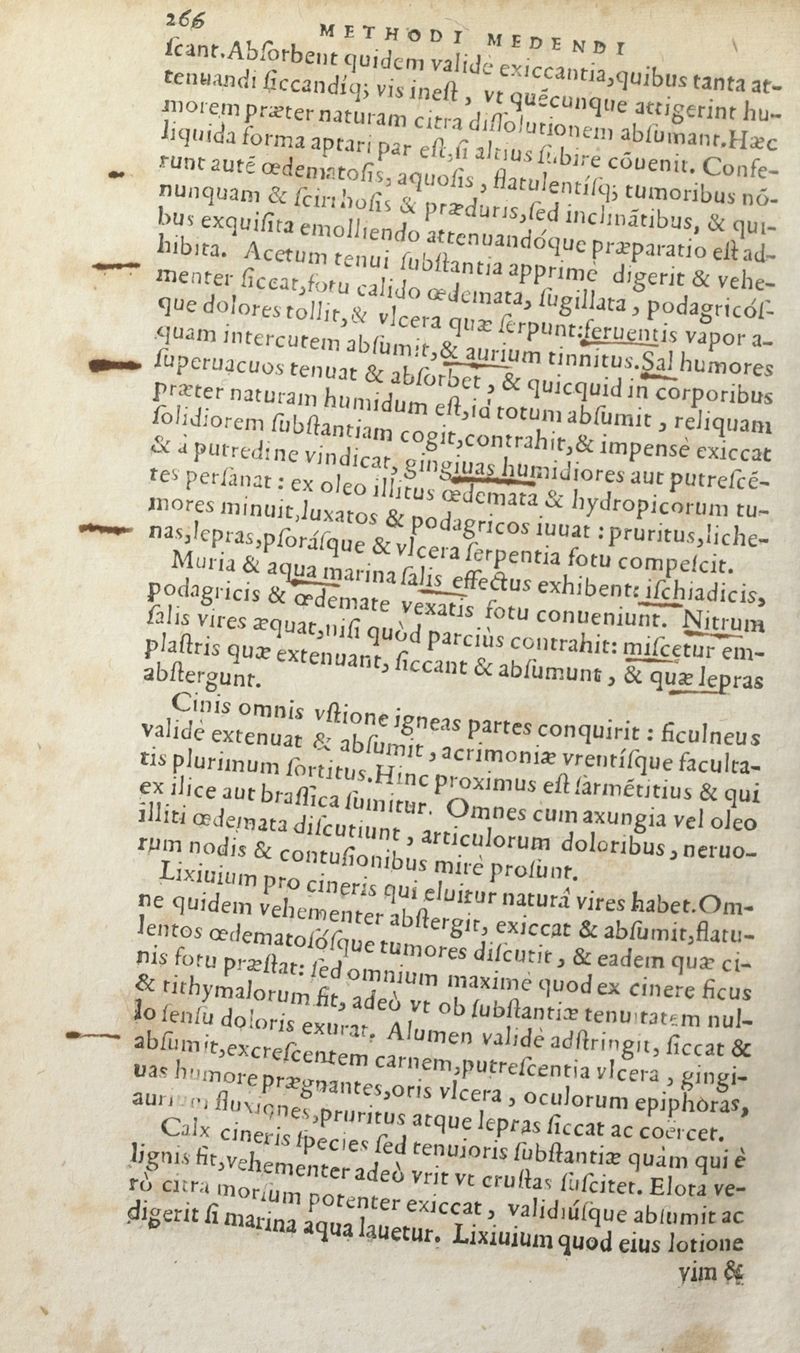 266
METHODI MEDENDI
ſcant. Abſorbent quidem validè exiccantia, quibus tanta at-
tenuandi ſiccandíq; vis ineſt, vt quęcunque attigerint hu-
morem præter naturam citra diſſolutionem abſumant. Hæc
liquida forma aptari par eſt, ſi altius ſubire cõuenit. Confe-
runt autẽ œdematoſis, aquoſis, flatulentíſq; tumoribus nõ-
nunquam & ſcirrhoſis & præduris, ſed inclinãtibus, & qui-
bus exquiſita emolliendo attenuandóque præparatio eſt ad-
hibita. Acetum tenui ſubſtantia apprimè digerit & vehe-
menter ſiccat, fotu calido œdemata, ſugillata, podagricóſ-
que dolores tollit, & vlcera quæ ſerpunt: feruentis vapor a-
quam intercutem abſumit, & aurium tinnitus. Sal humores
ſuperuacuos tenuat & abſorbet, & quicquid in corporibus
præter naturam humidum eſt, id totum abſumit, reliquam
ſolidiorem ſubſtantiam cogit, contrahit, & impensè exiccat
& à putredine vindicat, gingiuas humidiores aut putreſcẽ-
tes perſanat: ex oleo illitus œdemata & hydropicorum tu-
mores minuit, luxatos & podagricos iuuat: pruritus, liche-
nas, lepras, pſoráſque & vlcera ſerpentia fotu compeſcit.
Muria & aqua marina ſalis effectus exhibent: iſchiadicis,
podagricis & œdemate vexatis fotu conueniunt. Nitrum
ſalis vires æquat, niſi quòd parcius contrahit: miſcetur em-
plaſtris quæ extenuant, ſiccant & abſumunt, & quæ lepras
abſtergunt.
Cinis omnis vſtione igneas partes conquirit: ficulneus
validè extenuat & abſumit, acrimoniæ vrentíſque faculta-
tis plurimum ſortitus. Hinc proximus eſt ſarmẽtitius & qui
ex ilice aut braſſica ſumitur. Omnes cum axungia vel oleo
illiti œdemata diſcutiunt, articulorum doloribus, neruo-
rum nodis & contuſionibus mirè proſunt.
Lixiuium pro cineris qui eluitur naturâ vires habet. Om-
ne quidem vehementer abſtergit, exiccat & abſumit, flatu-
lentos œdematoſóſque tumores diſcutit, & eadem quæ ci-
nis fotu præſtat: ſed omnium maximè quod ex cinere ficus
& tithymalorum fit, adeò vt ob ſubſtantiæ tenuitatem nul-
lo ſenſu doloris exurat. Alumen validè adſtringit, ſiccat &
abſumit, excreſcentem carnem, putreſcentia vlcera, gingi-
uas humore prægnantes, oris vlcera, oculorum epiphoras,
aurium fluxiones, pruritus atque lepras ſiccat ac coërcet.
Calx cineris ſpecies ſed tenuioris ſubſtantiæ quàm qui è
lignis fit, vehementer adeò vrit vt cruſtas ſuſcitet. Elota ve-
rò citra morſum potenter exiccat, validiúſque abſumit ac
digerit ſi marina aqua lauetur. Lixiuium quod eius lotione
vim &